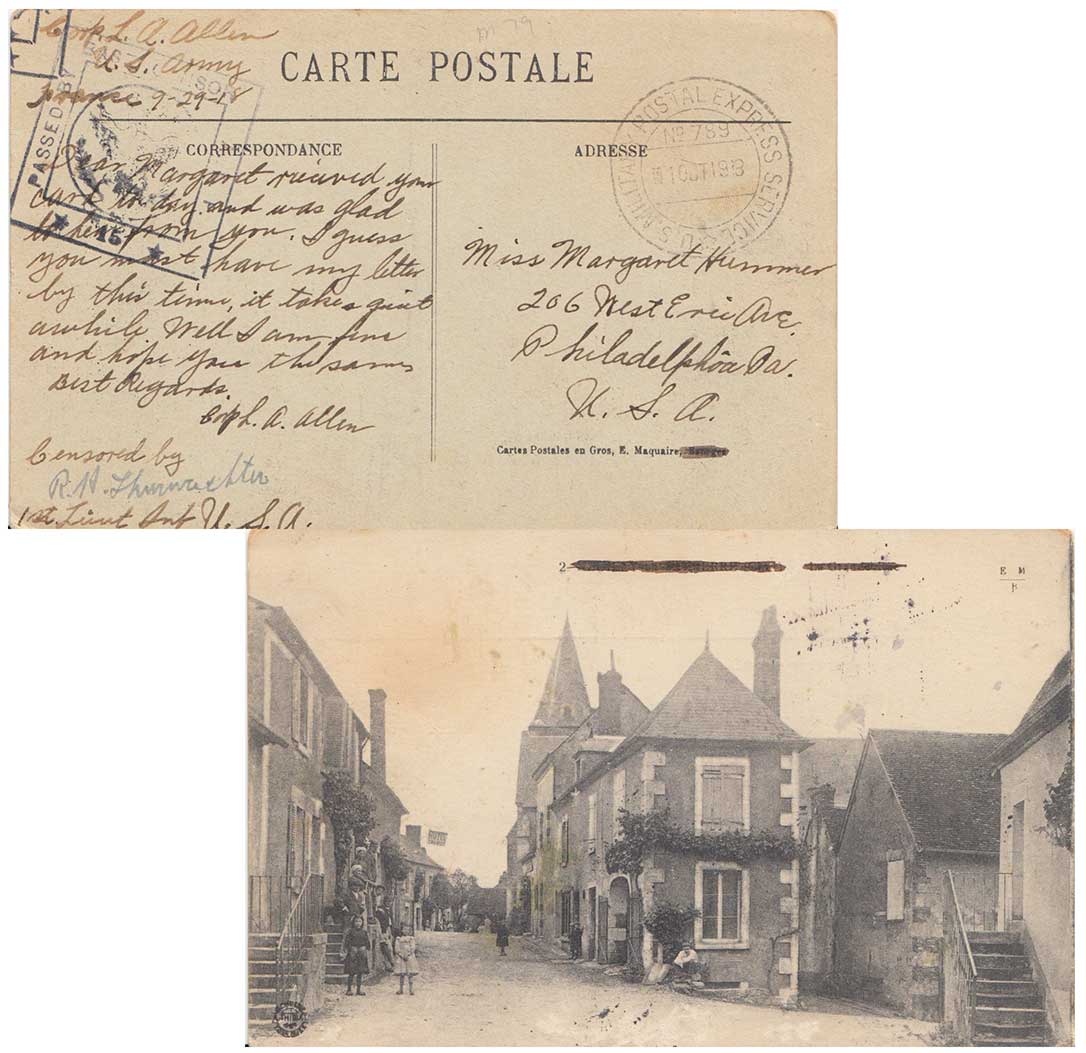 Corp. L. A. Allen
U. S. Army
France 9-29-18
M 79
CARTE POSTALE
PASSED BY
15
CORRESPONDANCE
ADRESSE
U.S. MILITARY POSTAL EXPRESS SERVICE
No. 789
1 OCT 1918
Dear Margaret recieved your
card to day and was glad
to hear from you. I guess
you must have my letter
by this time, it takes quit
awhile Well I am fine
and hope you the same
Best Regards.
Corp L. A. Allen
Miss Margaret Hummer
206 West Erie Ave.
Philadelphia Pa.
U. S. A.
Cartes Postales en Gros, E. Maquaire,
Censored by
R. H.
1st Lieut Inf U. S. A.
2
E M
B